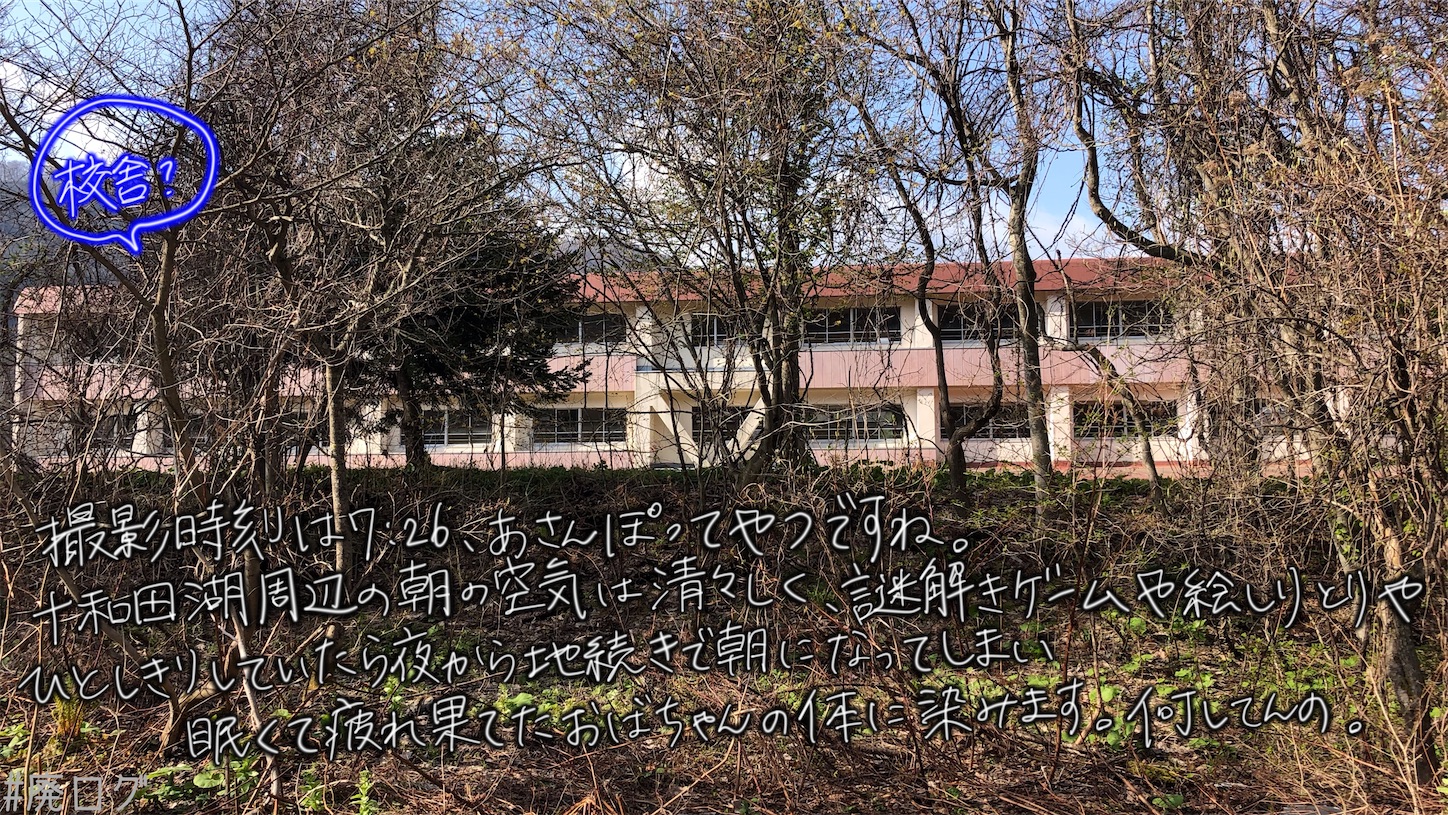 校舎?
撮影時刻は7:26、あさんぽってやつですね。
十和田湖周辺の朝の空気は清々しく、謎解きゲームや絵しりとりや
ひとしきりしていたら夜から地続きで朝になってしまい
眠くて疲れ果てたおばちゃんの体に染みます。何してんの。
#廃ログ